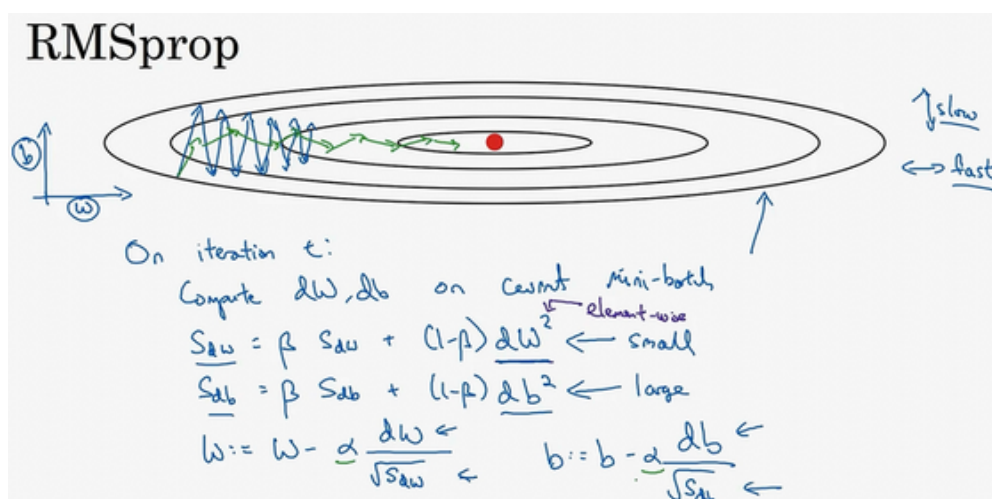 RMSprop
slow
fast
b
w
On iteration t:
Compute dW, db on current mini-batch
element-wise
S_dw = β S_dw + (1-β) dW² ← small
S_db = β S_db + (1-β) db² ← large
W := W - α dW/√S_dw ←
b := b - α db/√S_db ←